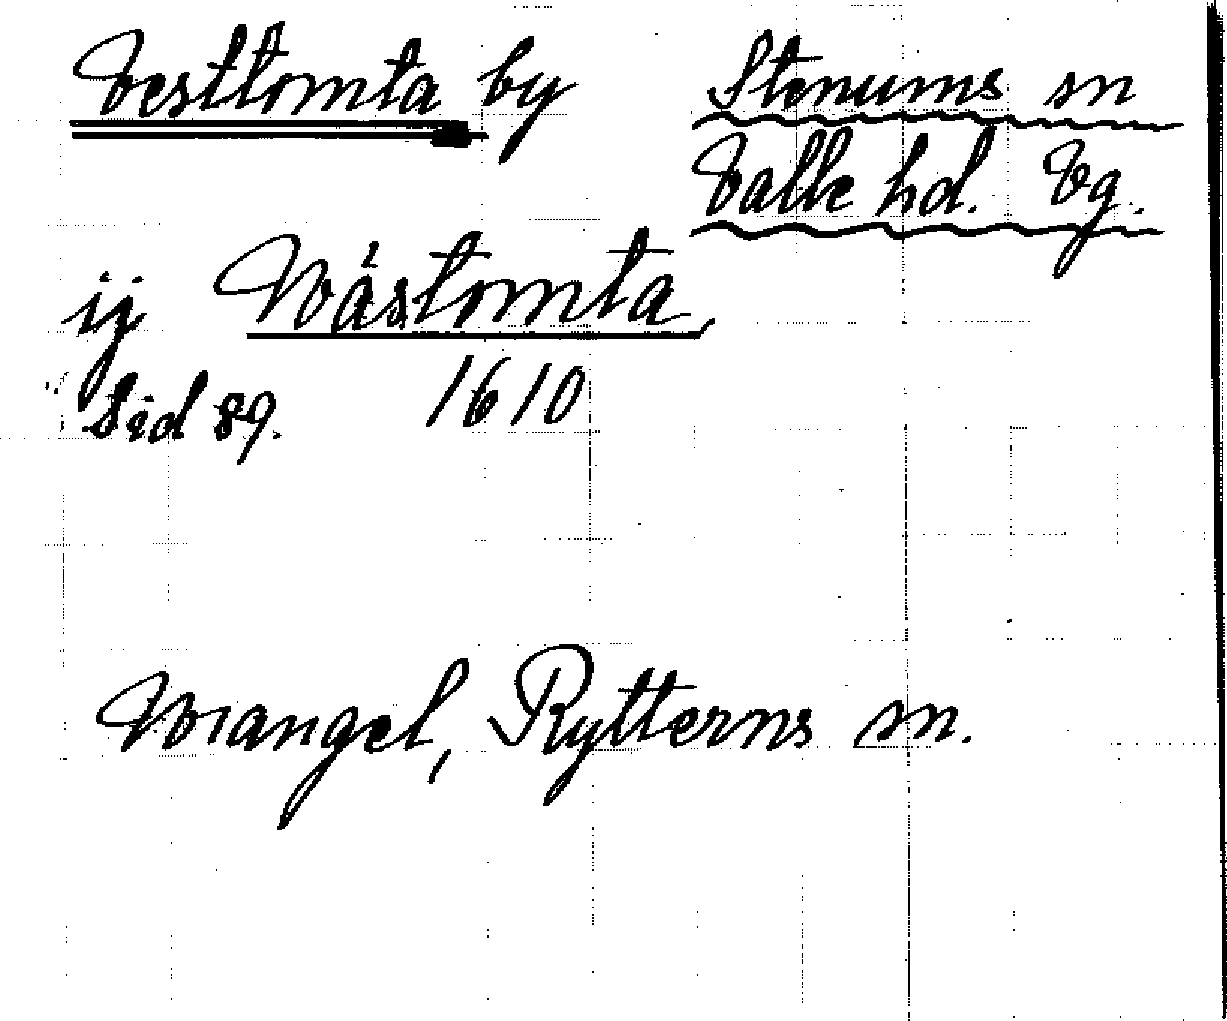 Vesttomta by
Stenums sn
Valle hd. Vg.
ij Wástomta,
Sid 89. 1610
Wrangel, Rytterns sn.